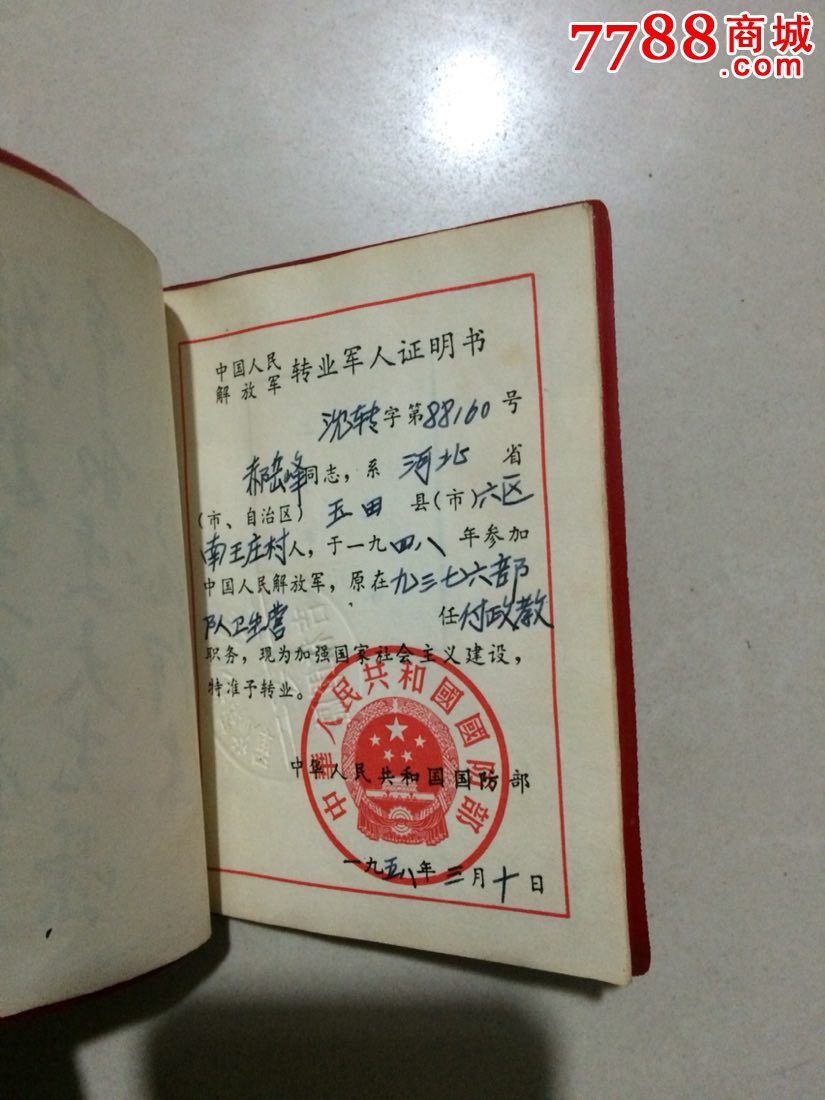 7788商城
.com
中国人民
解放军 转业军人证明书
沈转字第88160号
郝岳峰同志，系河北省
（市、自治区）玉田县（市）六区
南王庄村人，于一九四八年参加
中国人民解放军，原在九三七六部
队卫生营 任付政教
职务，现为加强国家社会主义建设，
特准予转业。
中華人民共和國國防部
中华人民共和国国防部
一九五八年三月十日